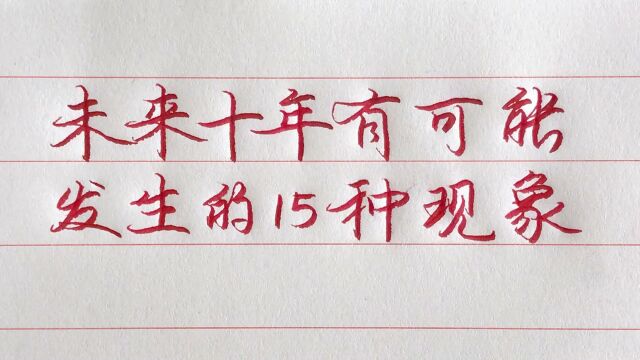 未来十年有可能
发生的15种现象